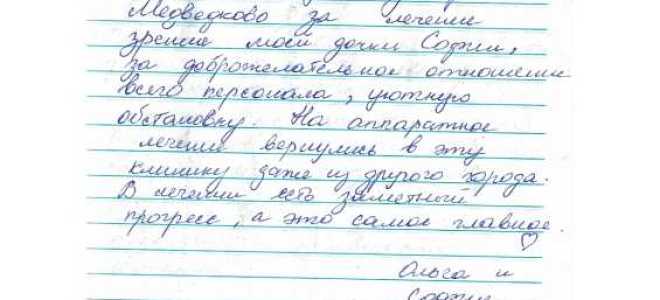 Медведково за лечение
зрение моей дочки Софии,
за доброжелательное отношение
всего персонала, уютную
обстановку. На аппаратное
лечение вернулись в эту
клинику даже из другого города.
В лечении есть заметный
прогресс, а это самое главное.
♡
Ольга и